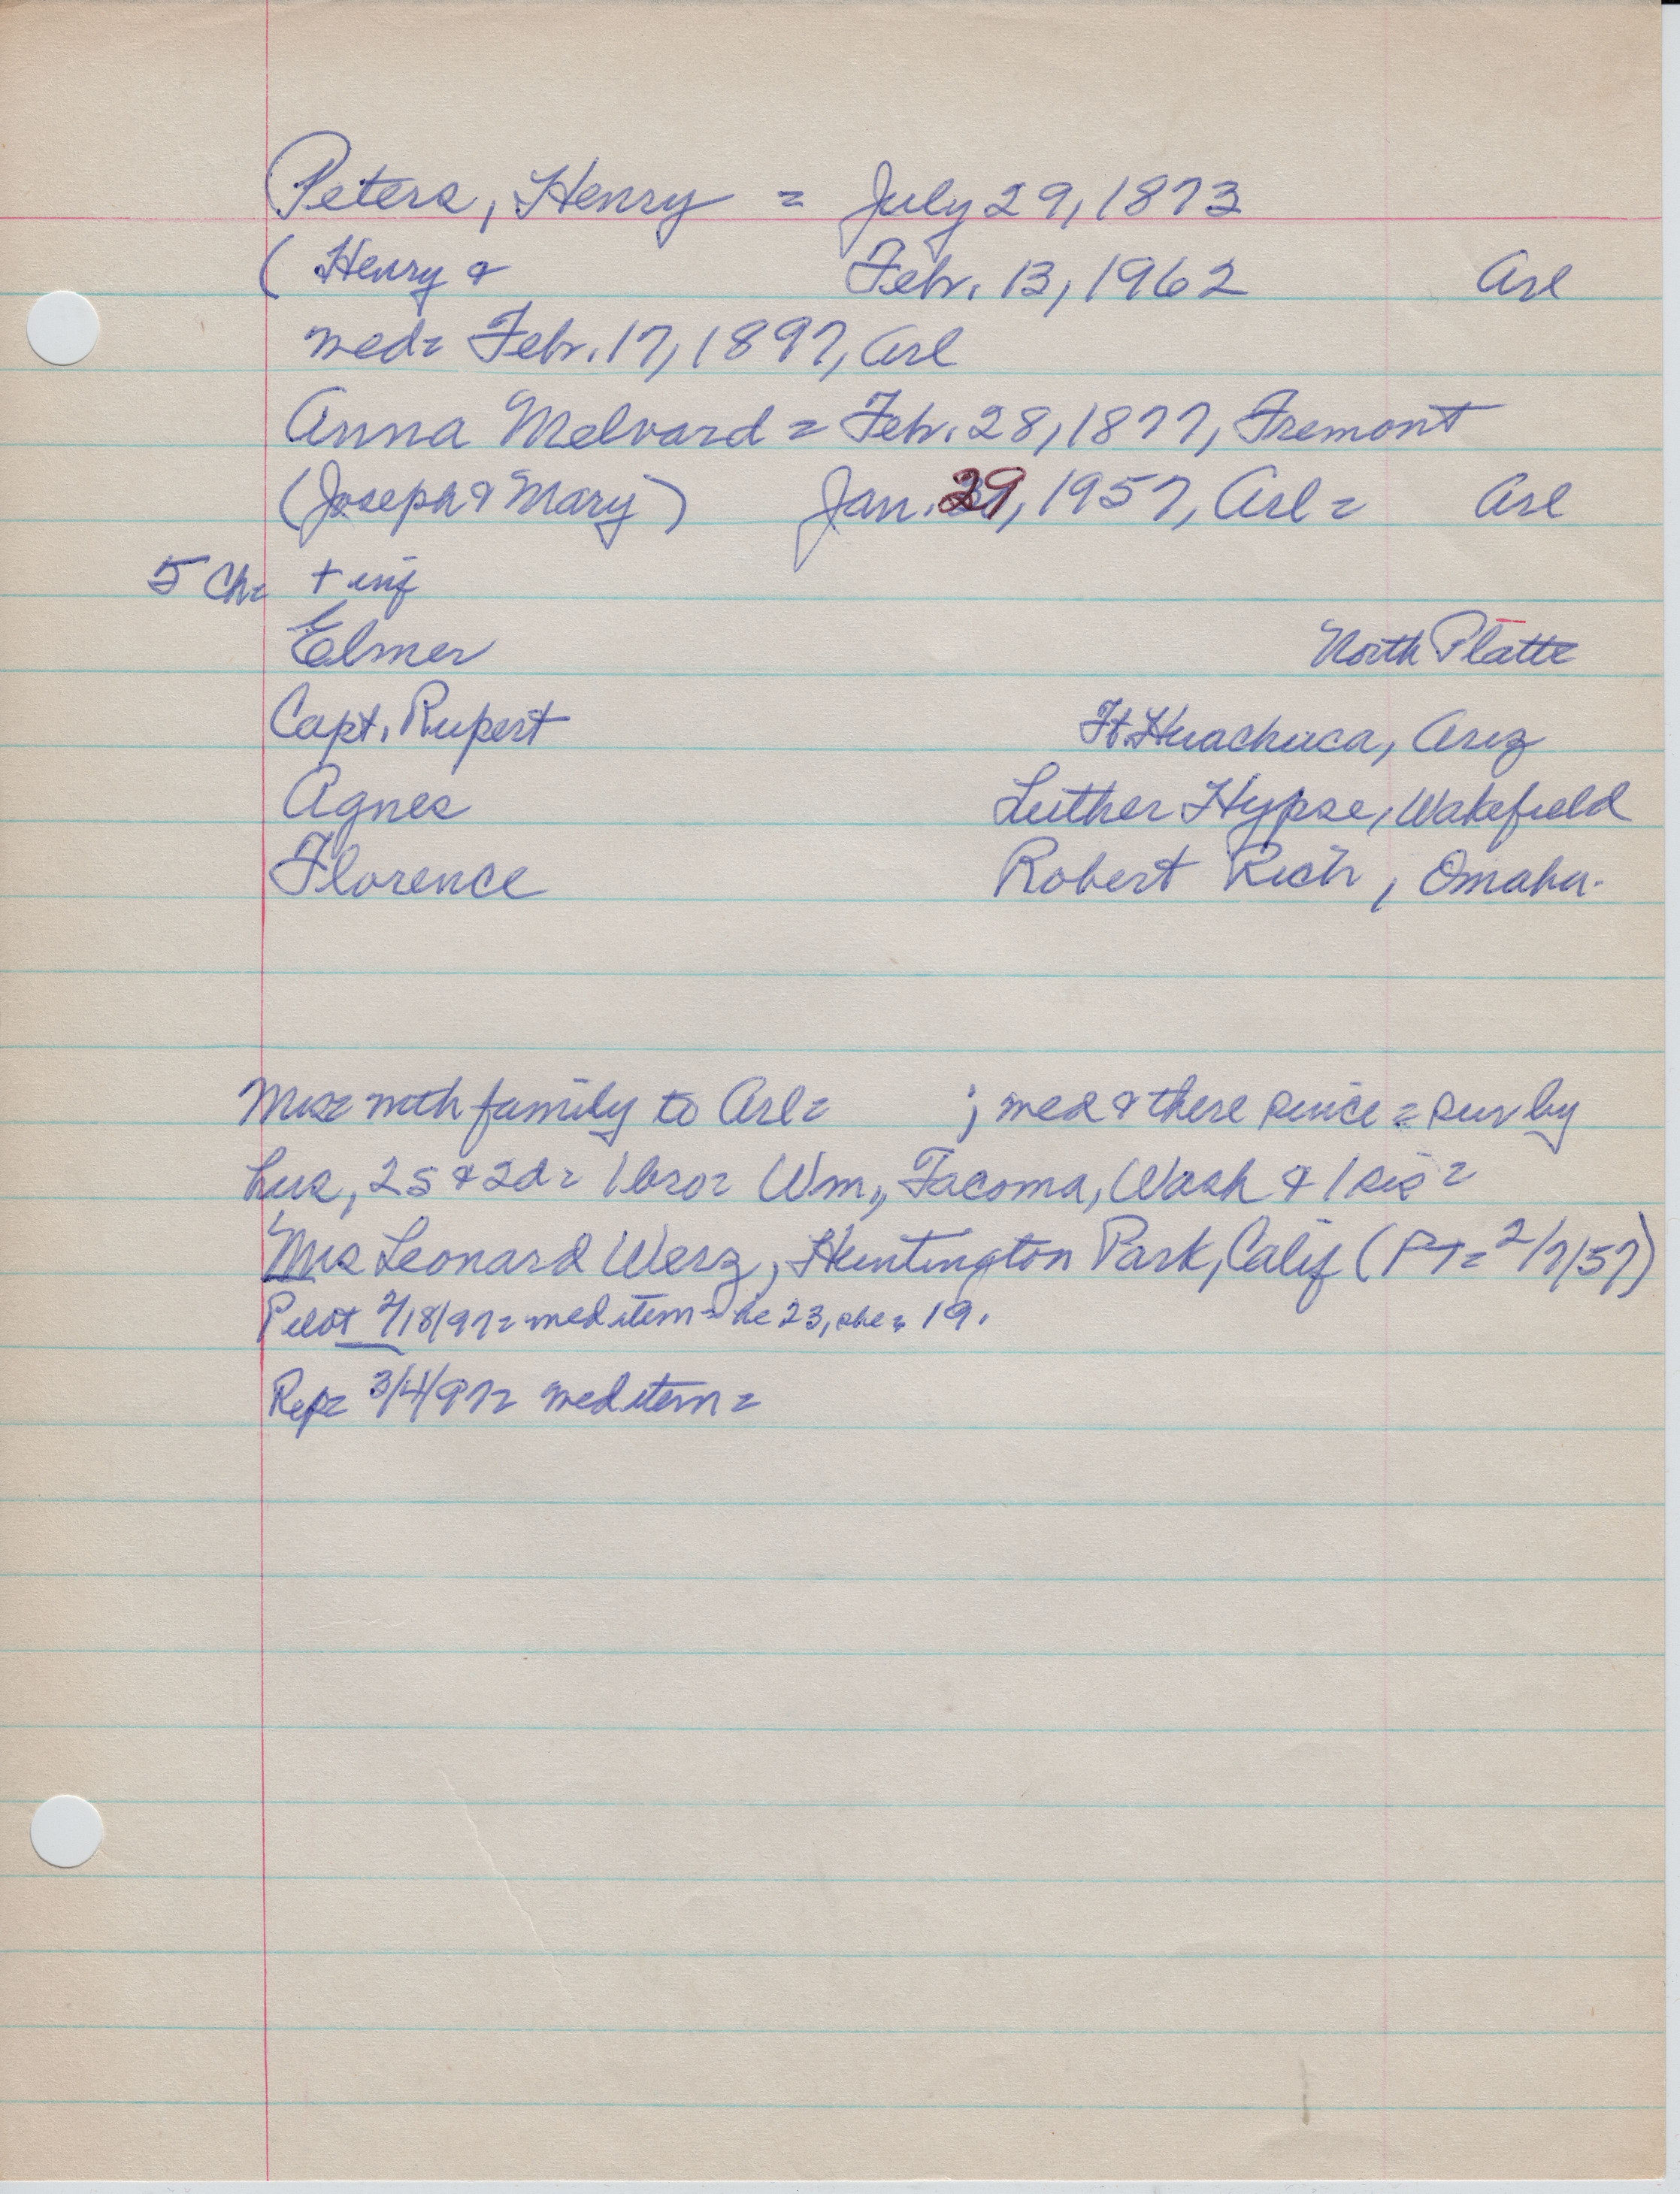 Peters, Henry = July 29, 1873
( Henry & Febr. 13, 1962 Arl
med= Febr. 17, 1897, Arl
Anna Melvard = Febr. 28, 1877, Fremont
(Joseph & Mary) Jan. 29, 1957, Arl = Arl
5 Ch= + inf
Elmer North Platte
Capt. Rupert Ft. Huachuca, Ariz
Agnes Luther Hypse, Wakefield
Florence Robert Rich, Omaha.
Mrs= with family to Arl= ; med & there since = surv by
hus, 2s & 2d= 1 bro= Wm., Tacoma, Wash & 1 sis =
Mrs Leonard Werz, Huntington Park, Calif (PT= 2/7/57)
Pilot 2/18/97= med item = he 23, she = 19.
Rep= 3/4/97= med item =